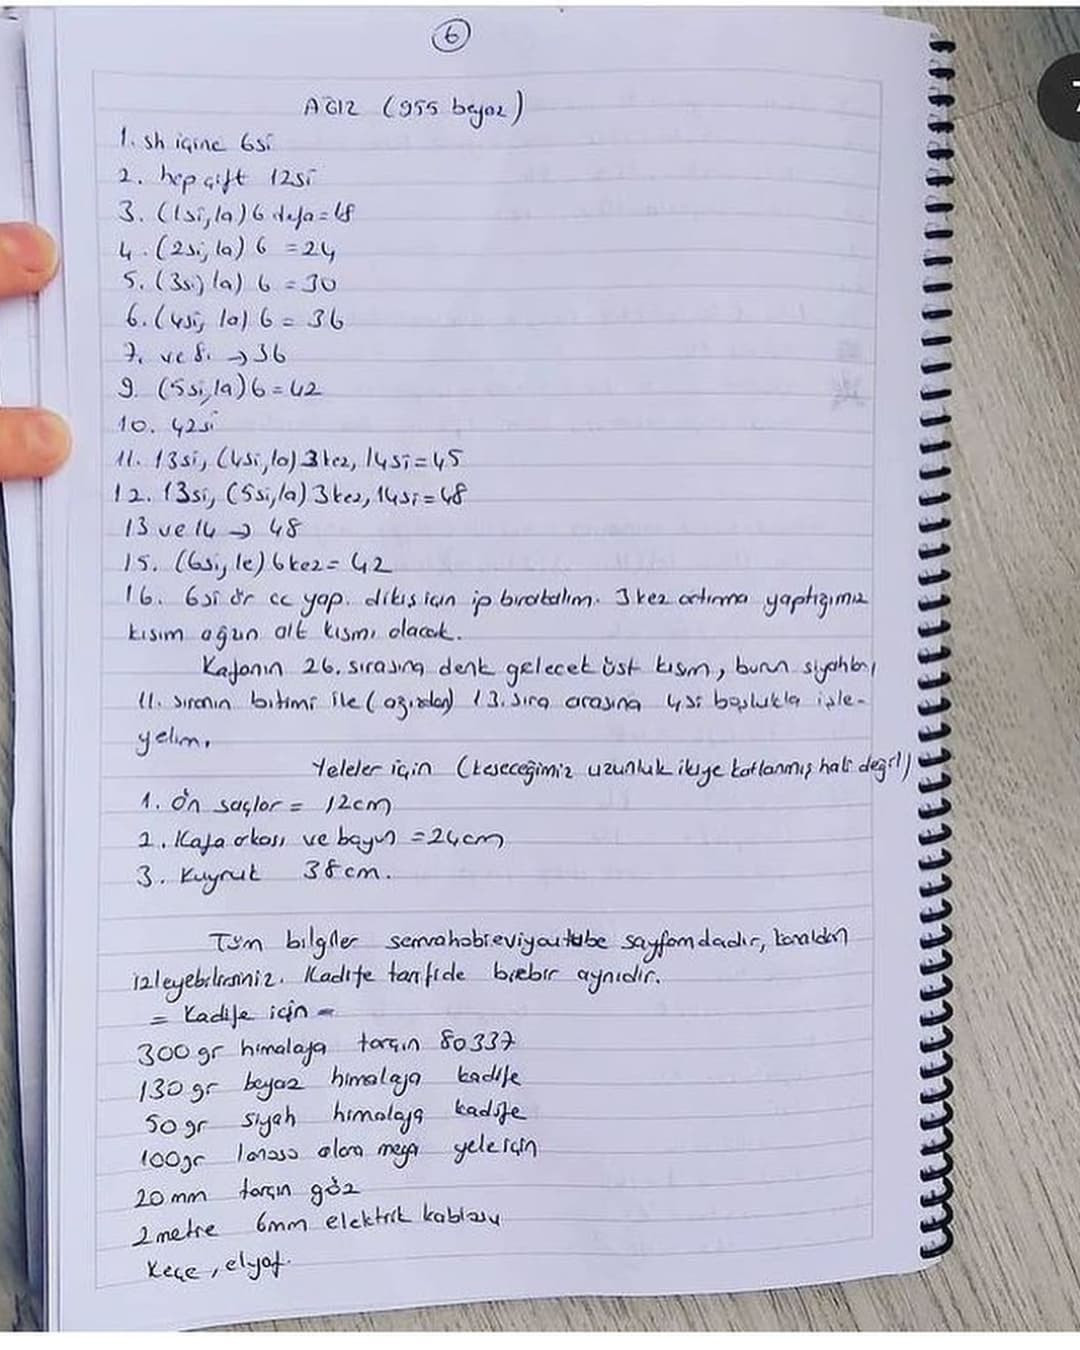 6
AĞIZ (955 beyaz)
1. sh içine 6si
2. hep çift 12si
3. (1si, 1a) 6 defa = 18
4. (2si, 1a) 6 = 24
5. (3si, 1a) 6 = 30
6. (4si, 1a) 6 = 36
7. ve 8. → 36
9. (5si, 1a) 6 = 42
10. 42si
11. 13si, (4si, 1a) 3 kez, 14si = 45
12. 13si, (5si, 1a) 3 kez, 14si = 48
13 ve 14 → 48
15. (6si, 1e) 6 kez = 42
16. 6si ör cc yap. dikiş için ip bırakalım. 3 kez artırma yaptığımız
kısım ağzın alt kısmı olacak.
Kafanın 26. sırasına denk gelecek üst kısım, burun siyahla
11. sıranın bitimi ile (ağızdan) 13. sıra arasına 4si boşlukla işle-
yelim.
Yeleler için (keseceğimiz uzunluk ikiye katlanmış hali değil)
1. Ön saçlar = 12cm
2. Kafa arkası ve boyun = 24cm
3. Kuyruk 38cm.
Tüm bilgiler semrahobieviyoutube sayfamdadır, kanaldan
izleyebilirsiniz. Kadife tarifide birebir aynıdır.
= Kadife için =
300 gr himalaya tarçın 80337
130 gr beyaz himalaya kadife
50 gr siyah himalaya kadife
100gr lanoso alara mega yele için
20 mm tarçın göz
2 metre 6mm elektrik kablosu
Keçe, elyaf.
7